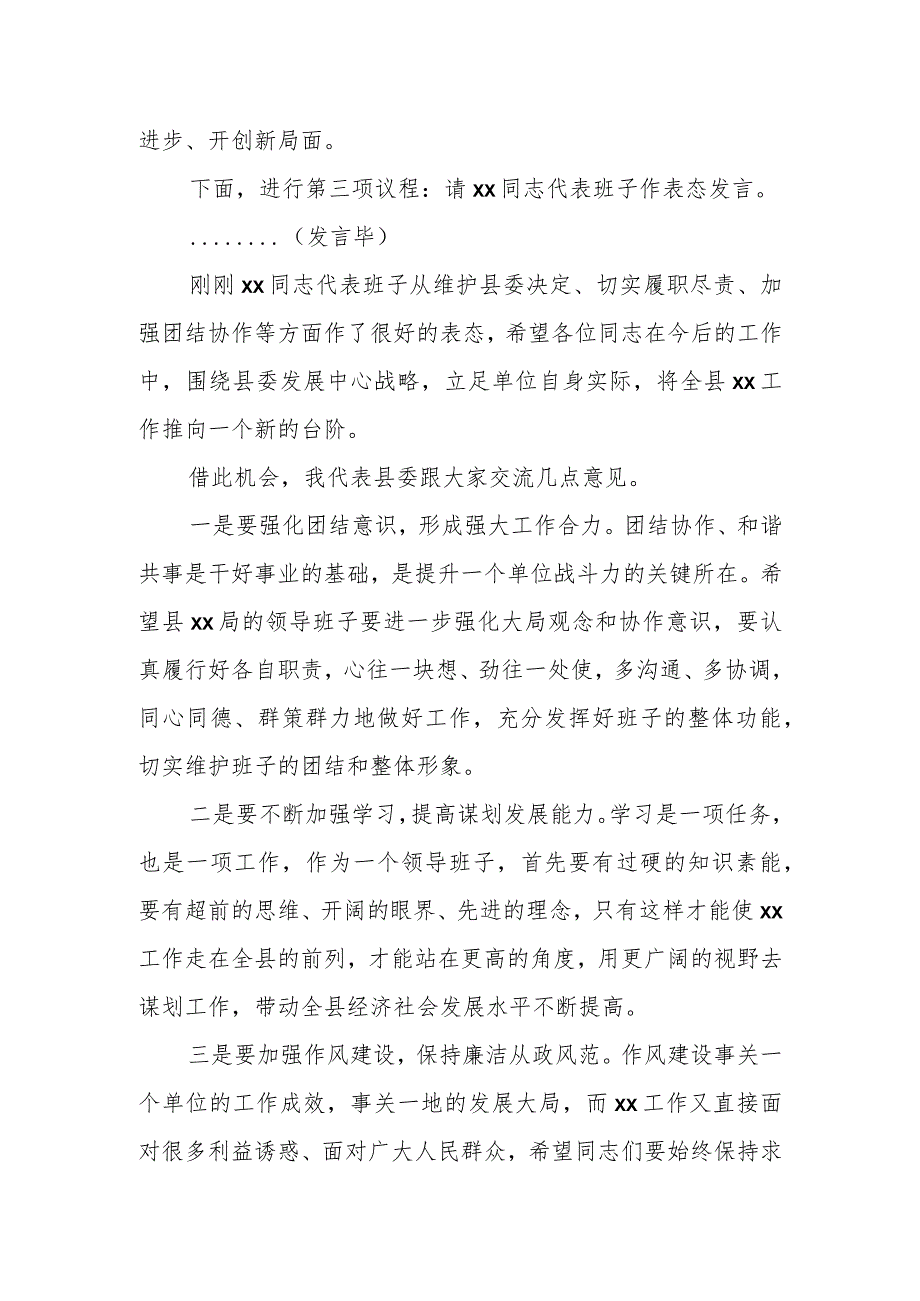 进步、开创新局面。
下面，进行第三项议程：请xx同志代表班子作表态发言。
........（发言毕）
刚刚xx同志代表班子从维护县委决定、切实履职尽责、加
强团结协作等方面作了很好的表态，希望各位同志在今后的工作
中，围绕县委发展中心战略，立足单位自身实际，将全县xx工
作推向一个新的台阶。
借此机会，我代表县委跟大家交流几点意见。
一是要强化团结意识，形成强大工作合力。团结协作、和谐
共事是干好事业的基础，是提升一个单位战斗力的关键所在。希
望县xx局的领导班子要进一步强化大局观念和协作意识，要认
真履行好各自职责，心往一块想、劲往一处使，多沟通、多协调，
同心同德、群策群力地做好工作，充分发挥好班子的整体功能，
切实维护班子的团结和整体形象。
二是要不断加强学习，提高谋划发展能力。学习是一项任务，
也是一项工作，作为一个领导班子，首先要有过硬的知识素能，
要有超前的思维、开阔的眼界、先进的理念，只有这样才能使xx
工作走在全县的前列，才能站在更高的角度，用更广阔的视野去
谋划工作，带动全县经济社会发展水平不断提高。
三是要加强作风建设，保持廉洁从政风范。作风建设事关一
个单位的工作成效，事关一地的发展大局，而xx工作又直接面
对很多利益诱惑、面对广大人民群众，希望同志们要始终保持求